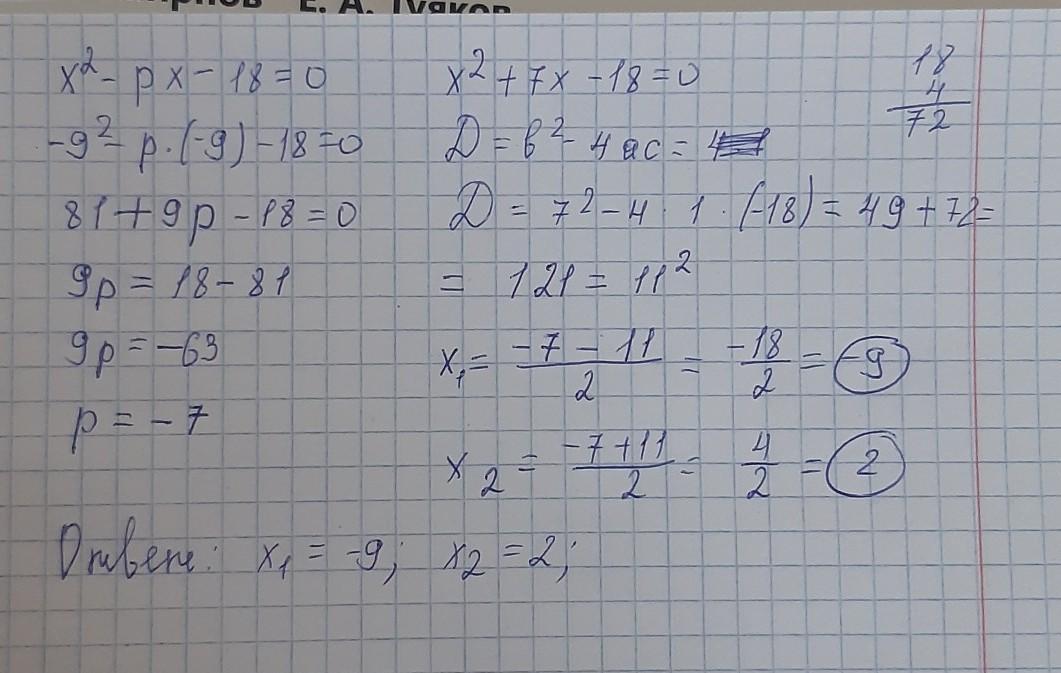 Е. А. Туяков
x² - px - 18 = 0
-9² - p·(-9) - 18 = 0
81 + 9p - 18 = 0
9p = 18 - 81
9p = -63
p = -7
x² + 7x - 18 = 0
D = b² - 4ac =
D = 7² - 4 · 1 · (-18) = 49 + 72 =
= 121 = 11²
x₁ = (-7 - 11)/2 = -18/2 = -9
x₂ = (-7 + 11)/2 = 4/2 = 2
18
4
72
Ответ: x₁ = -9; x₂ = 2;